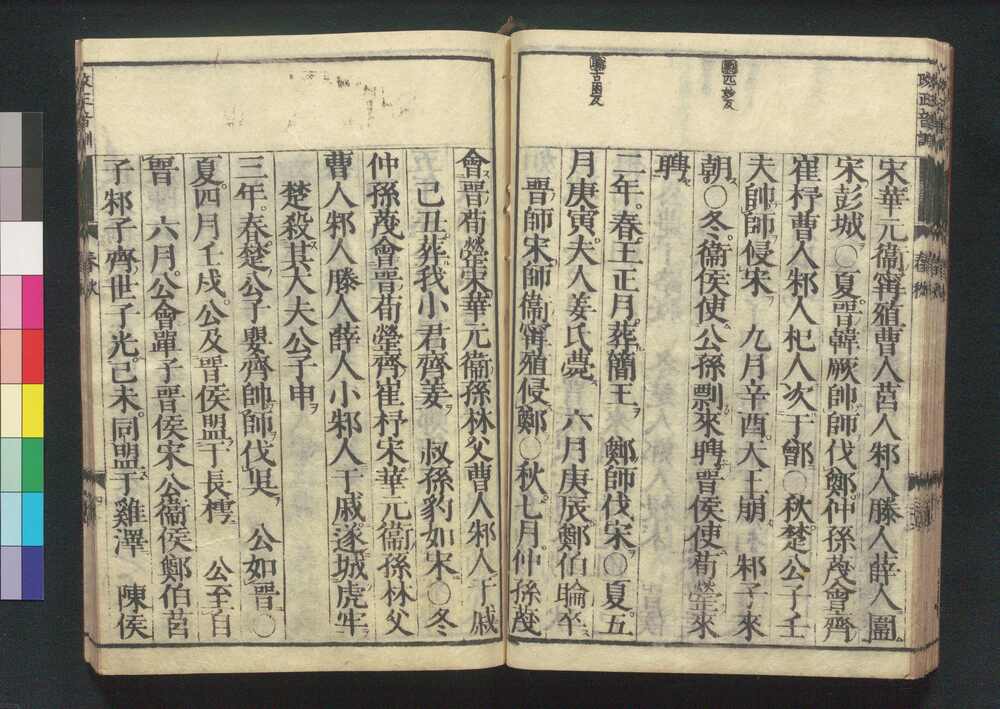 宋華元衞甯殖曹人莒人邾人滕人薛人圍
宋彭城○夏晋韓厥帥師伐鄭仲孫蔑會齊
崔杼曹人邾人杞人次于鄫○秋楚公子壬
夫帥師侵宋 九月辛酉天王崩 邾子來
朝○冬衞侯使公孫剽來聘晋侯使荀罃來
聘
二年春王正月葬簡王 鄭師伐宋○夏五
月庚寅夫人姜氏薨 六月庚辰鄭伯睔卒
晋師宋師衞甯殖侵鄭○秋七月仲孫蔑
會晋荀罃宋華元衞孫林父曹人邾人于戚
己丑葬我小君齊姜 叔孫豹如宋○冬
仲孫蔑會晋荀罃齊崔杼宋華元衞孫林父
曹人邾人滕人薛人小邾人于戚遂城虎牢
楚殺其大夫公子申
三年春楚公子嬰齊帥師伐吳 公如晋○
夏四月壬戌公及晋侯盟于長樗 公至自
晋 六月公會單子晋侯宋公衞侯鄭伯莒
子邾子齊世子光己未同盟于雞澤 陳侯
春秋